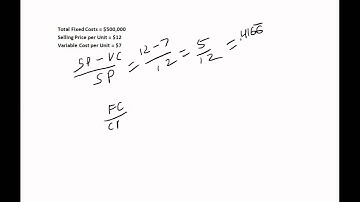 Total Fixed Costs = $500,000
Selling Price per Unit = $12
Variable Cost per Unit = $7
SP - VC / SP = 12 - 7 / 12 = 5 / 12 = .4166
FC / CM